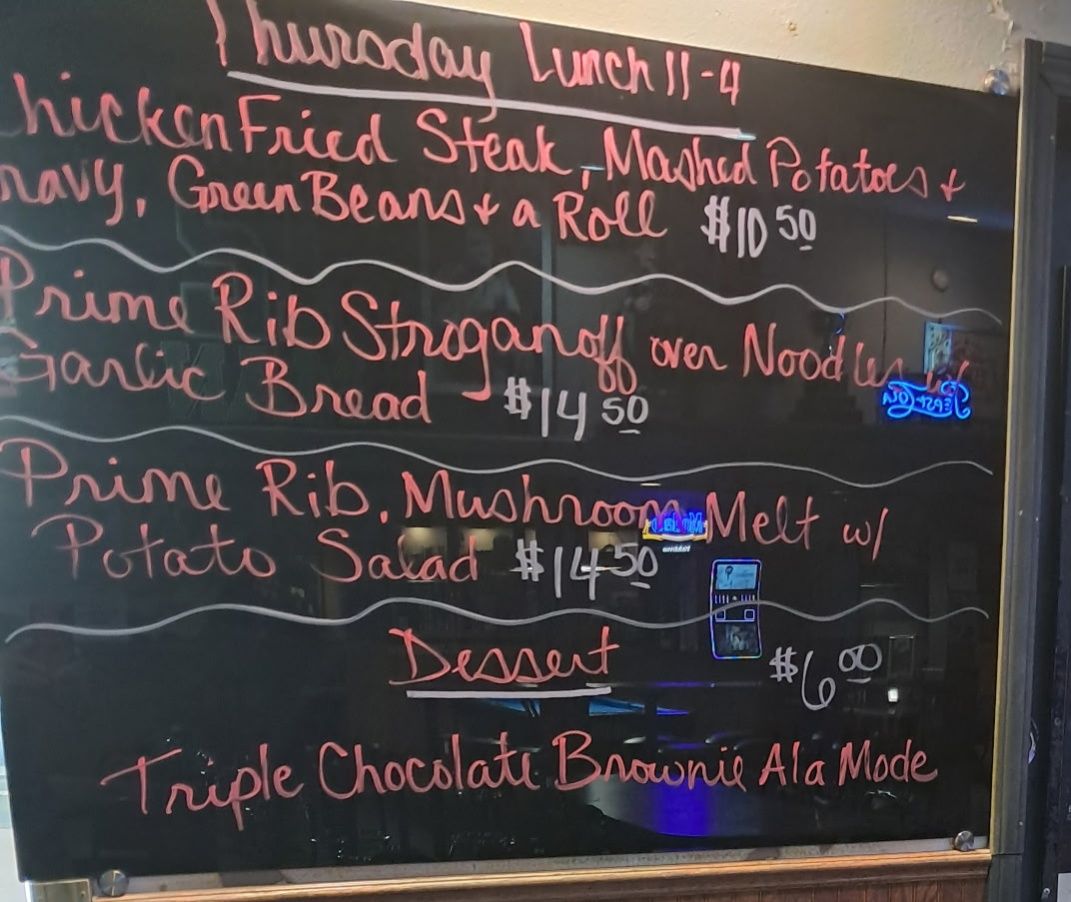 Thursday Lunch 11-4
hicken Fried Steak, Mashed Potatoes +
ravy, Green Beans + a Roll $10 50
Prime Rib Stroganoff over Noodles w/
Garlic Bread $14 50
Prime Rib, Mushroom Melt w/
Potato Salad $14 50
Dessert $6 00
Triple Chocolate Brownie Ala Mode